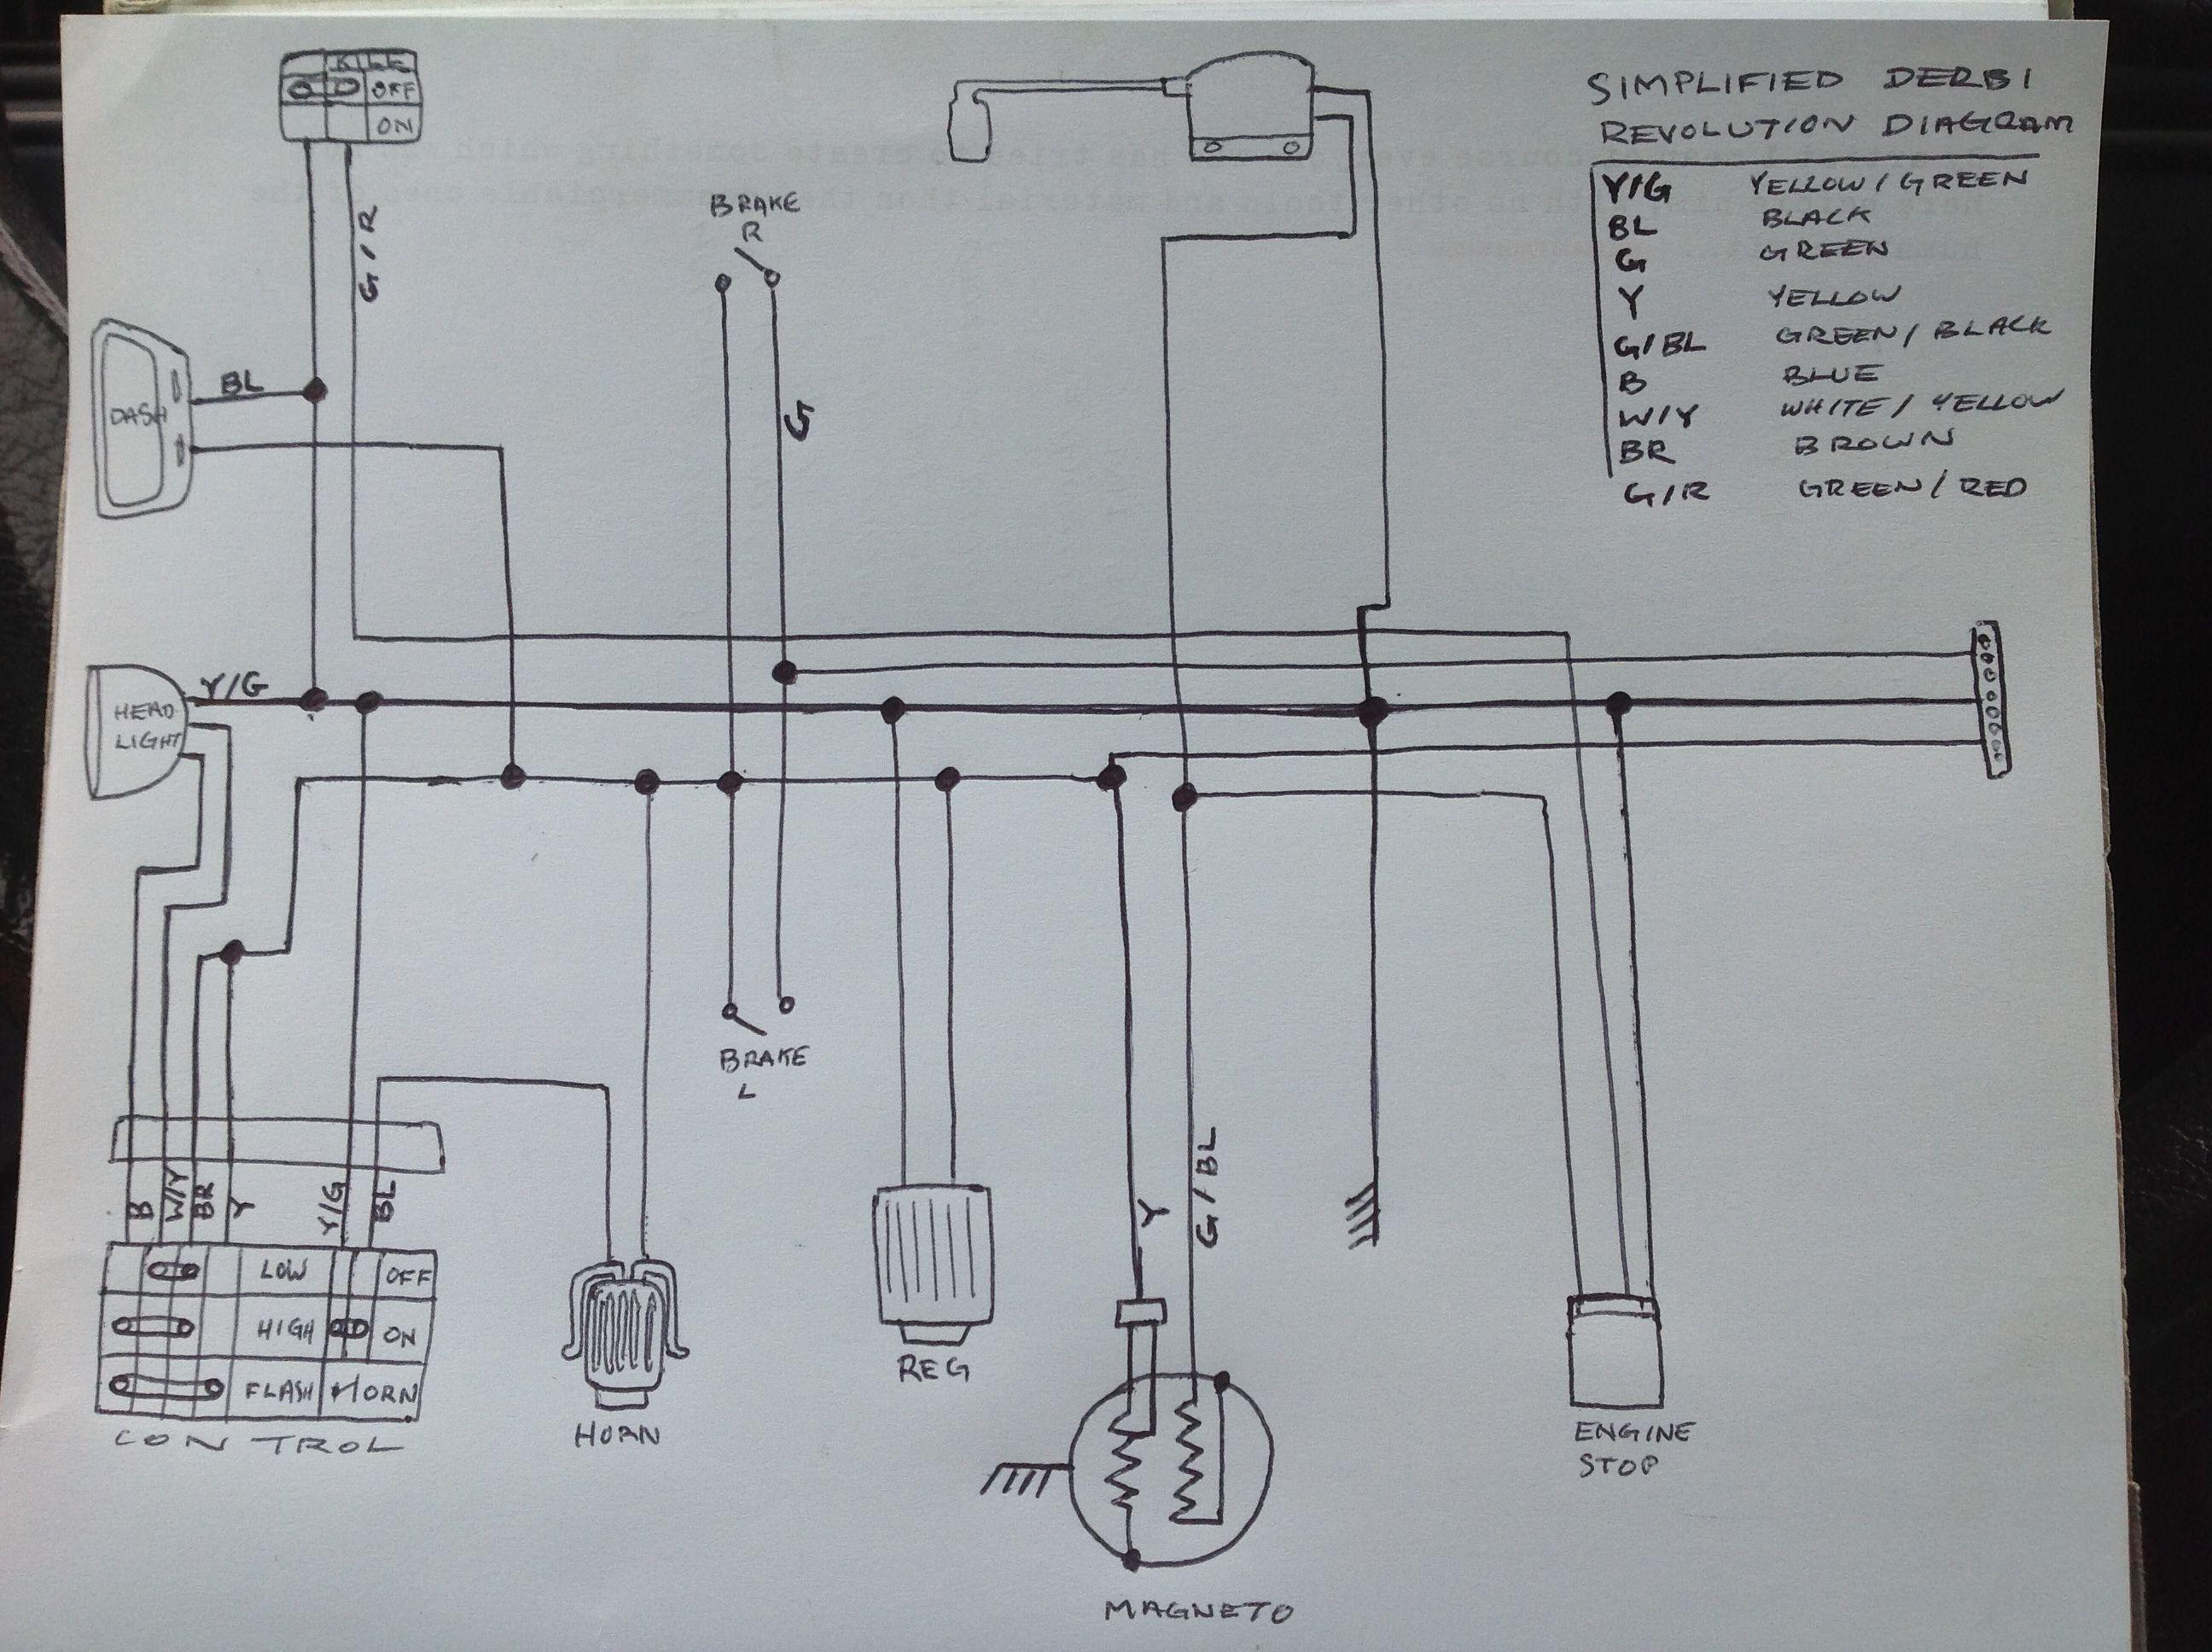 KILL
OFF
ON
SIMPLIFIED DERBI
REVOLUTION DIAGRAM
Y/G YELLOW/GREEN
BL BLACK
G GREEN
Y YELLOW
G/BL GREEN/BLACK
B BLUE
W/Y WHITE/YELLOW
BR BROWN
G/R GREEN/RED
G/R
BRAKE
R
BL
DASH
G
Y/G
HEAD
LIGHT
BRAKE
L
B
W/Y
BR
Y
Y/G
BL
Y
G/BL
LOW OFF
HIGH ON
FLASH HORN
CONTROL
HORN
REG
ENGINE
STOP
MAGNETO